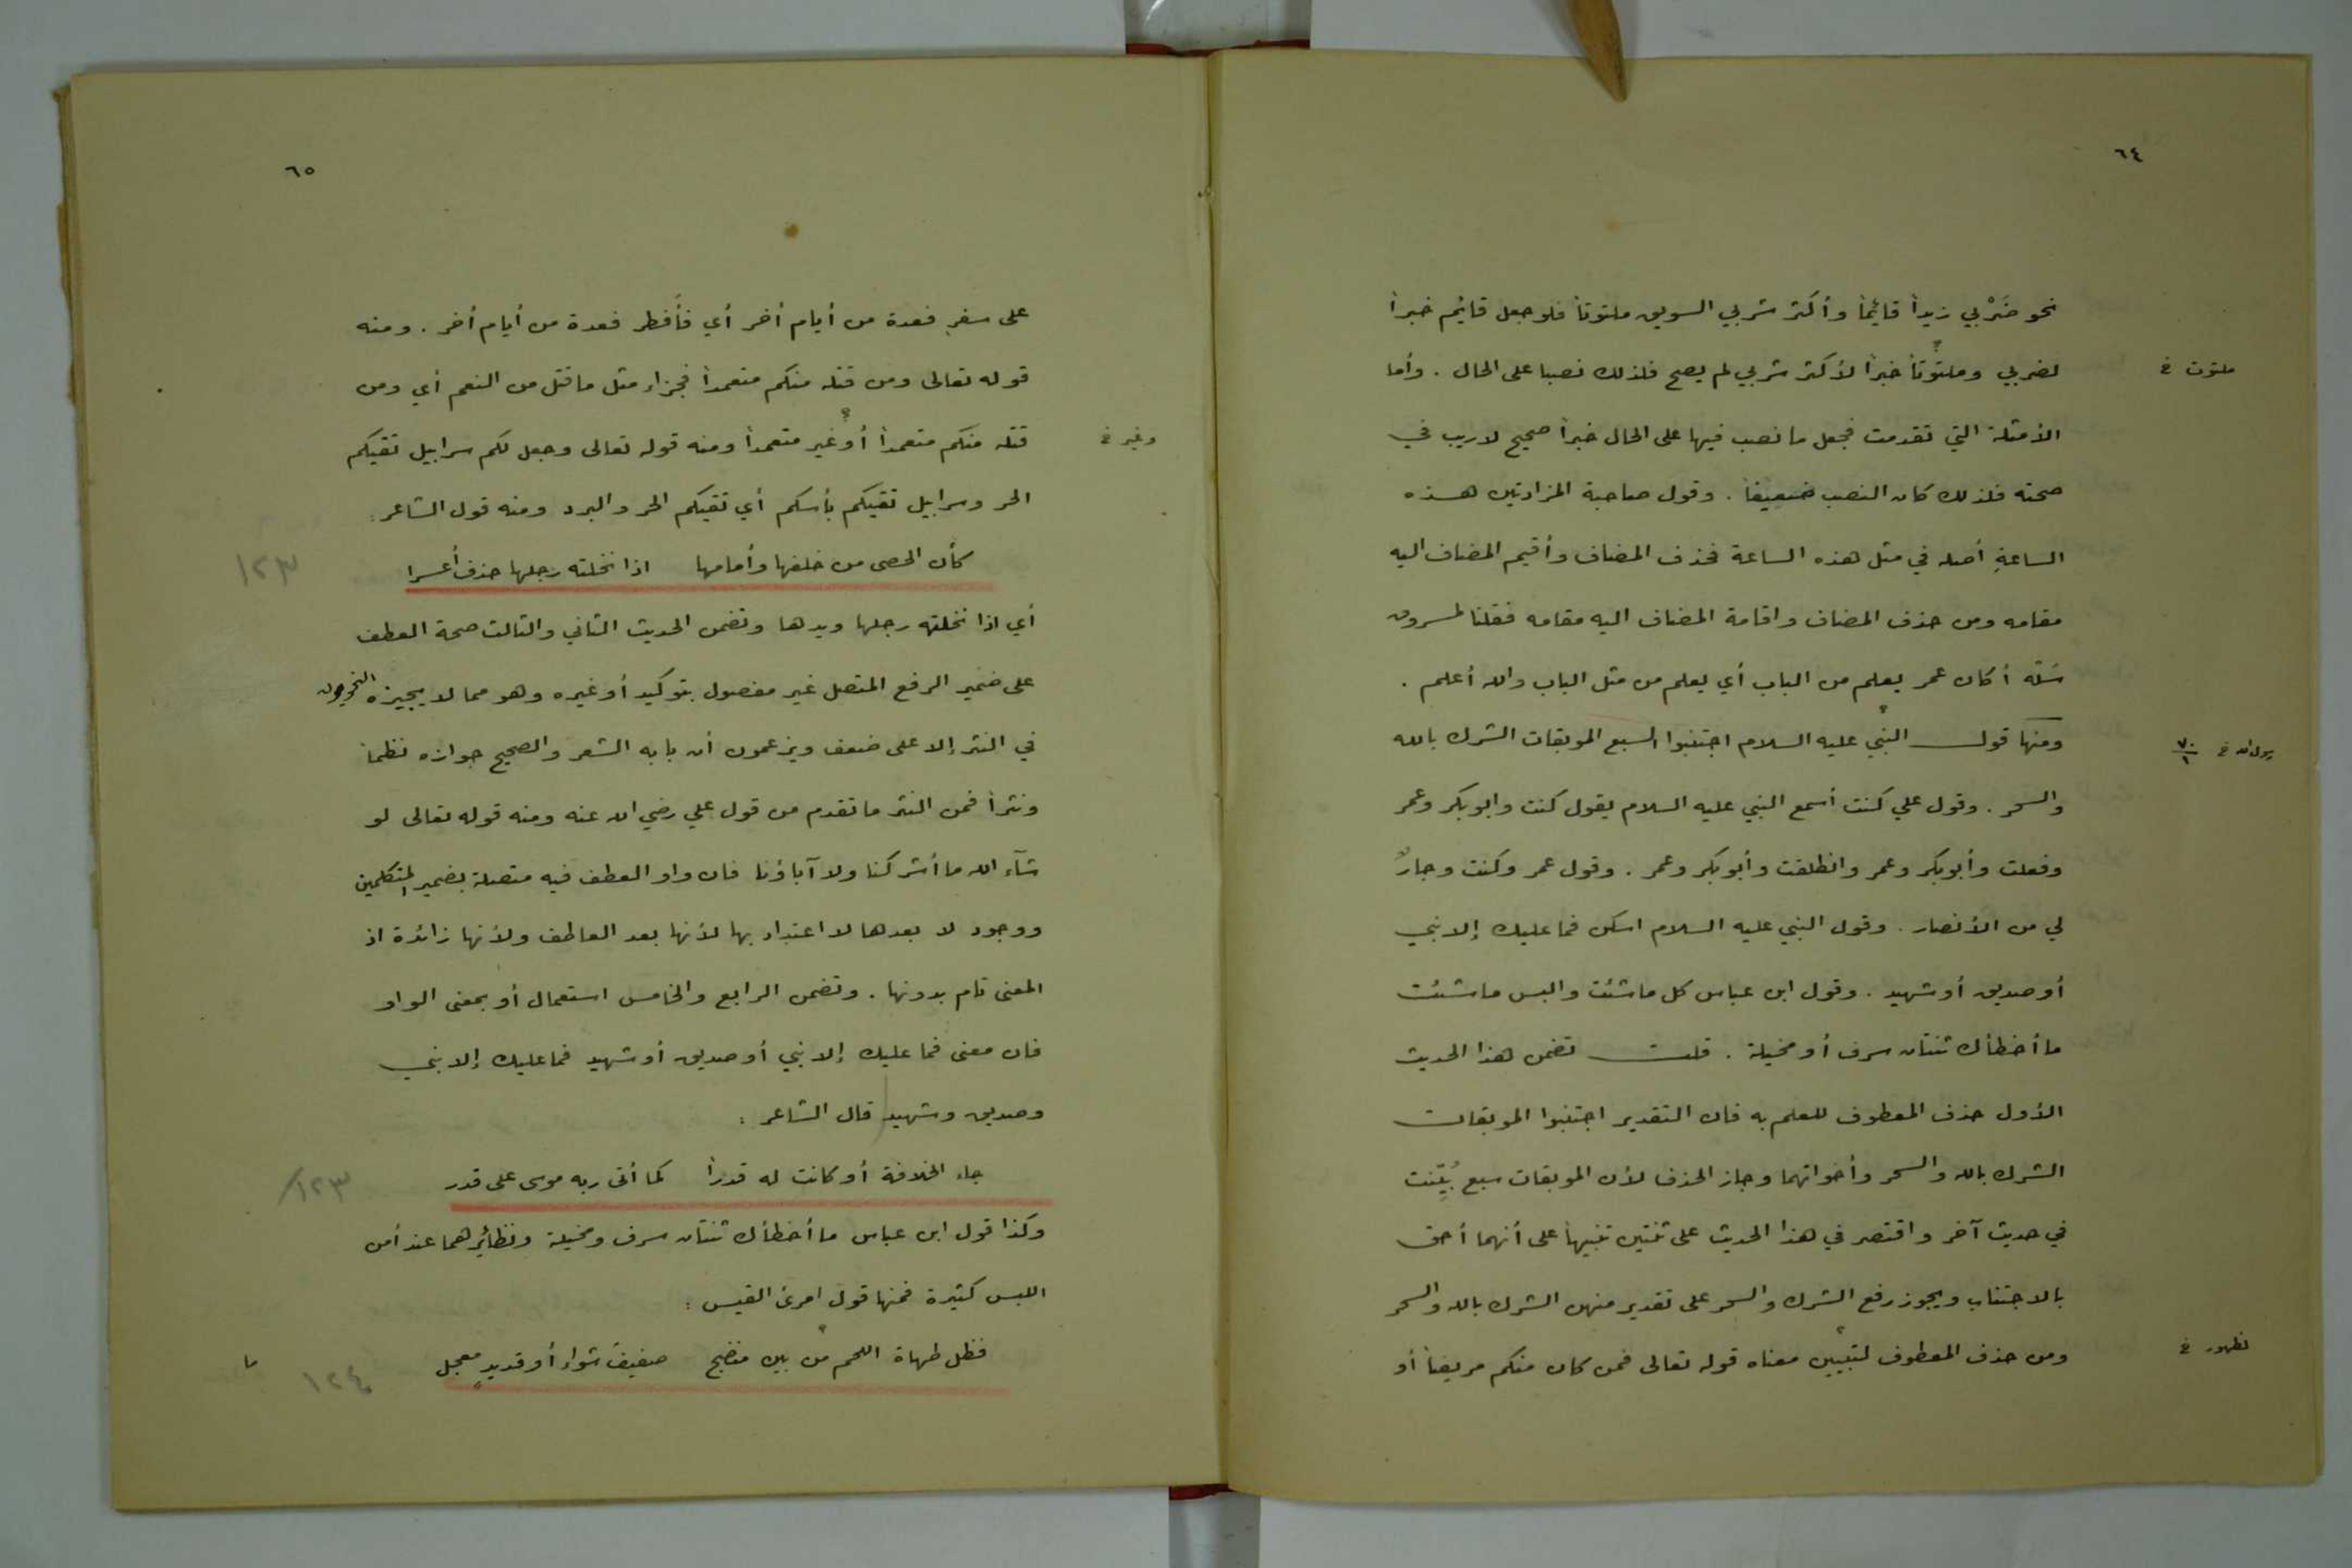 ٦٤
نحو ضَرْبي زيداً قائماً وأكثر شربي السويق ملتوتاً فلو جعل قائم خبراً
لضربي وملتوتاً خبراً لأكثر شربي لم يصح فلذلك نصبا على الحال . وأما
ملتوت خ
الأمثلة التي تقدمت فجعل ما نصب فيها على الحال خبراً صحيح لا ريب في
صحته فلذلك كان النصب ضعيفاً . وقول صاحبة المزادتين هذه
الساعةِ أصله في مثل هذه الساعة فحذف المضاف وأقيم المضاف اليه
مقامه ومن حذف المضاف واقامة المضاف اليه مقامه فقلنا لمسروق
سَلْه أكان عمر يعلم من الباب أي يعلم من مثل الباب والله أعلم .
ومنها قول النبي عليه السلام اجتنبوا السبع الموبقات الشرك بالله
رسول الله خ ٧٠/١
والسحر . وقول علي كنت أسمع النبي عليه السلام يقول كنت وابوبكر وعمر
وفعلت وأبوبكر وعمر وانطلقت وأبوبكر وعمر . وقول عمر وكنت وجارٌ
لي من الأنصار . وقول النبي عليه السلام اسكن فما عليك إلا نبي
أو صديق أو شهيد . وقول ابن عباس كل ما شئت والبس ما شئت
ما أخطأك ثنتان سرف أو مخيلة . قلت تضمن هذا الحديث
الأول حذف المعطوف للعلم به فان التقدير اجتنبوا الموبقات
الشرك بالله والسحر وأخواتهما وجاز الحذف لأن الموبقات سبع بُيِّنت
في حديث آخر واقتصر في هذا الحديث على ثنتين تنبيهاً على أنهما أحق
بالاجتناب ويجوز رفع الشرك والسحر على تقدير منهن الشرك بالله والسحر
ومن حذف المعطوف لتبيين معناه قوله تعالى فمن كان منكم مريضاً أو
لظهور خ
٦٥
على سفرٍ فعدة من أيام أخر أي فأفطر فعدة من أيام أخر . ومنه
قوله تعالى ومن قتله منكم متعمداً فجزاء مثل ما قتل من النعم أي ومن
قتله منكم متعمداً أو غير متعمداً ومنه قوله تعالى وجعل لكم سرابيل تقيكم
وغير خ
الحر وسرابيل تقيكم بأسكم أي تقيكم الحر والبرد ومنه قول الشاعر :
كأن الحصى من خلفها وأمامها اذا نجلته رجلها حذف أعسرا
١٢٣
أي اذا نجلته رجلها ويدها وتضمن الحديث الثاني والثالث صحة العطف
على ضمير الرفع المتصل غير مفصول بتوكيد أو غيره وهو مما لا يجيزه النحويون
في النثر إلا على ضعف ويزعمون أن بابه الشعر والصحيح جوازه نظماً
ونثراً فمن النثر ما تقدم من قول علي رضي الله عنه ومنه قوله تعالى لو
شآء الله ما أشركنا ولا آباؤنا فان واو العطف فيه متصلة بضمير المتكلمين
ووجود لا بعدها لا اعتداد بها لأنها بعد العاطف ولأنها زائدة اذ
المعنى تام بدونها . وتضمن الرابع والخامس استعمال أو بمعنى الواو
فان معنى فما عليك إلا نبي أو صديق أو شهيد فما عليك إلا نبي
وصديق وشهيد قال الشاعر :
جاء الخلافة أو كانت له قدراً كما أتى ربه موسى على قدر
١٢٣
وكذا قول ابن عباس ما أخطأك ثنتان سرف ومخيلة ونظائرهما عند أمن
اللبس كثيرة فمنها قول امرئ القيس :
فظل طهاة اللحم من بين منضج صفيف شواء أو قديرٍ معجل
١٢٤
ما